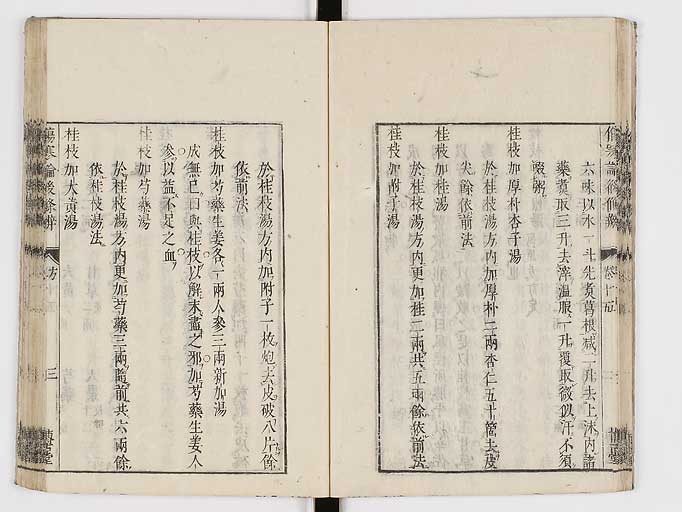 六味以水一斗先煑葛根減二升去上沫內諸
藥煑取三升去滓溫服一升覆取微似汗不須
啜粥
桂枝加厚朴杏子湯
於桂枝湯方內加厚朴二兩杏仁五十箇去皮
尖餘依前法
桂枝加桂湯
於桂枝湯方內更加桂二兩共五兩餘依前法
桂枝加附子湯
於桂枝湯方內加附子一枚炮去皮破八片餘
依前法
桂枝加芍藥生姜各一兩人參三兩新加湯
成無已曰與桂枝以解未盡之邪加芍藥生姜人
參以益不足之血
桂枝加芍藥湯
於桂枝湯方內更加芍藥三兩隨前共六兩餘
依桂枝湯法
桂枝加大黃湯
傷寒論後條辨
方
三